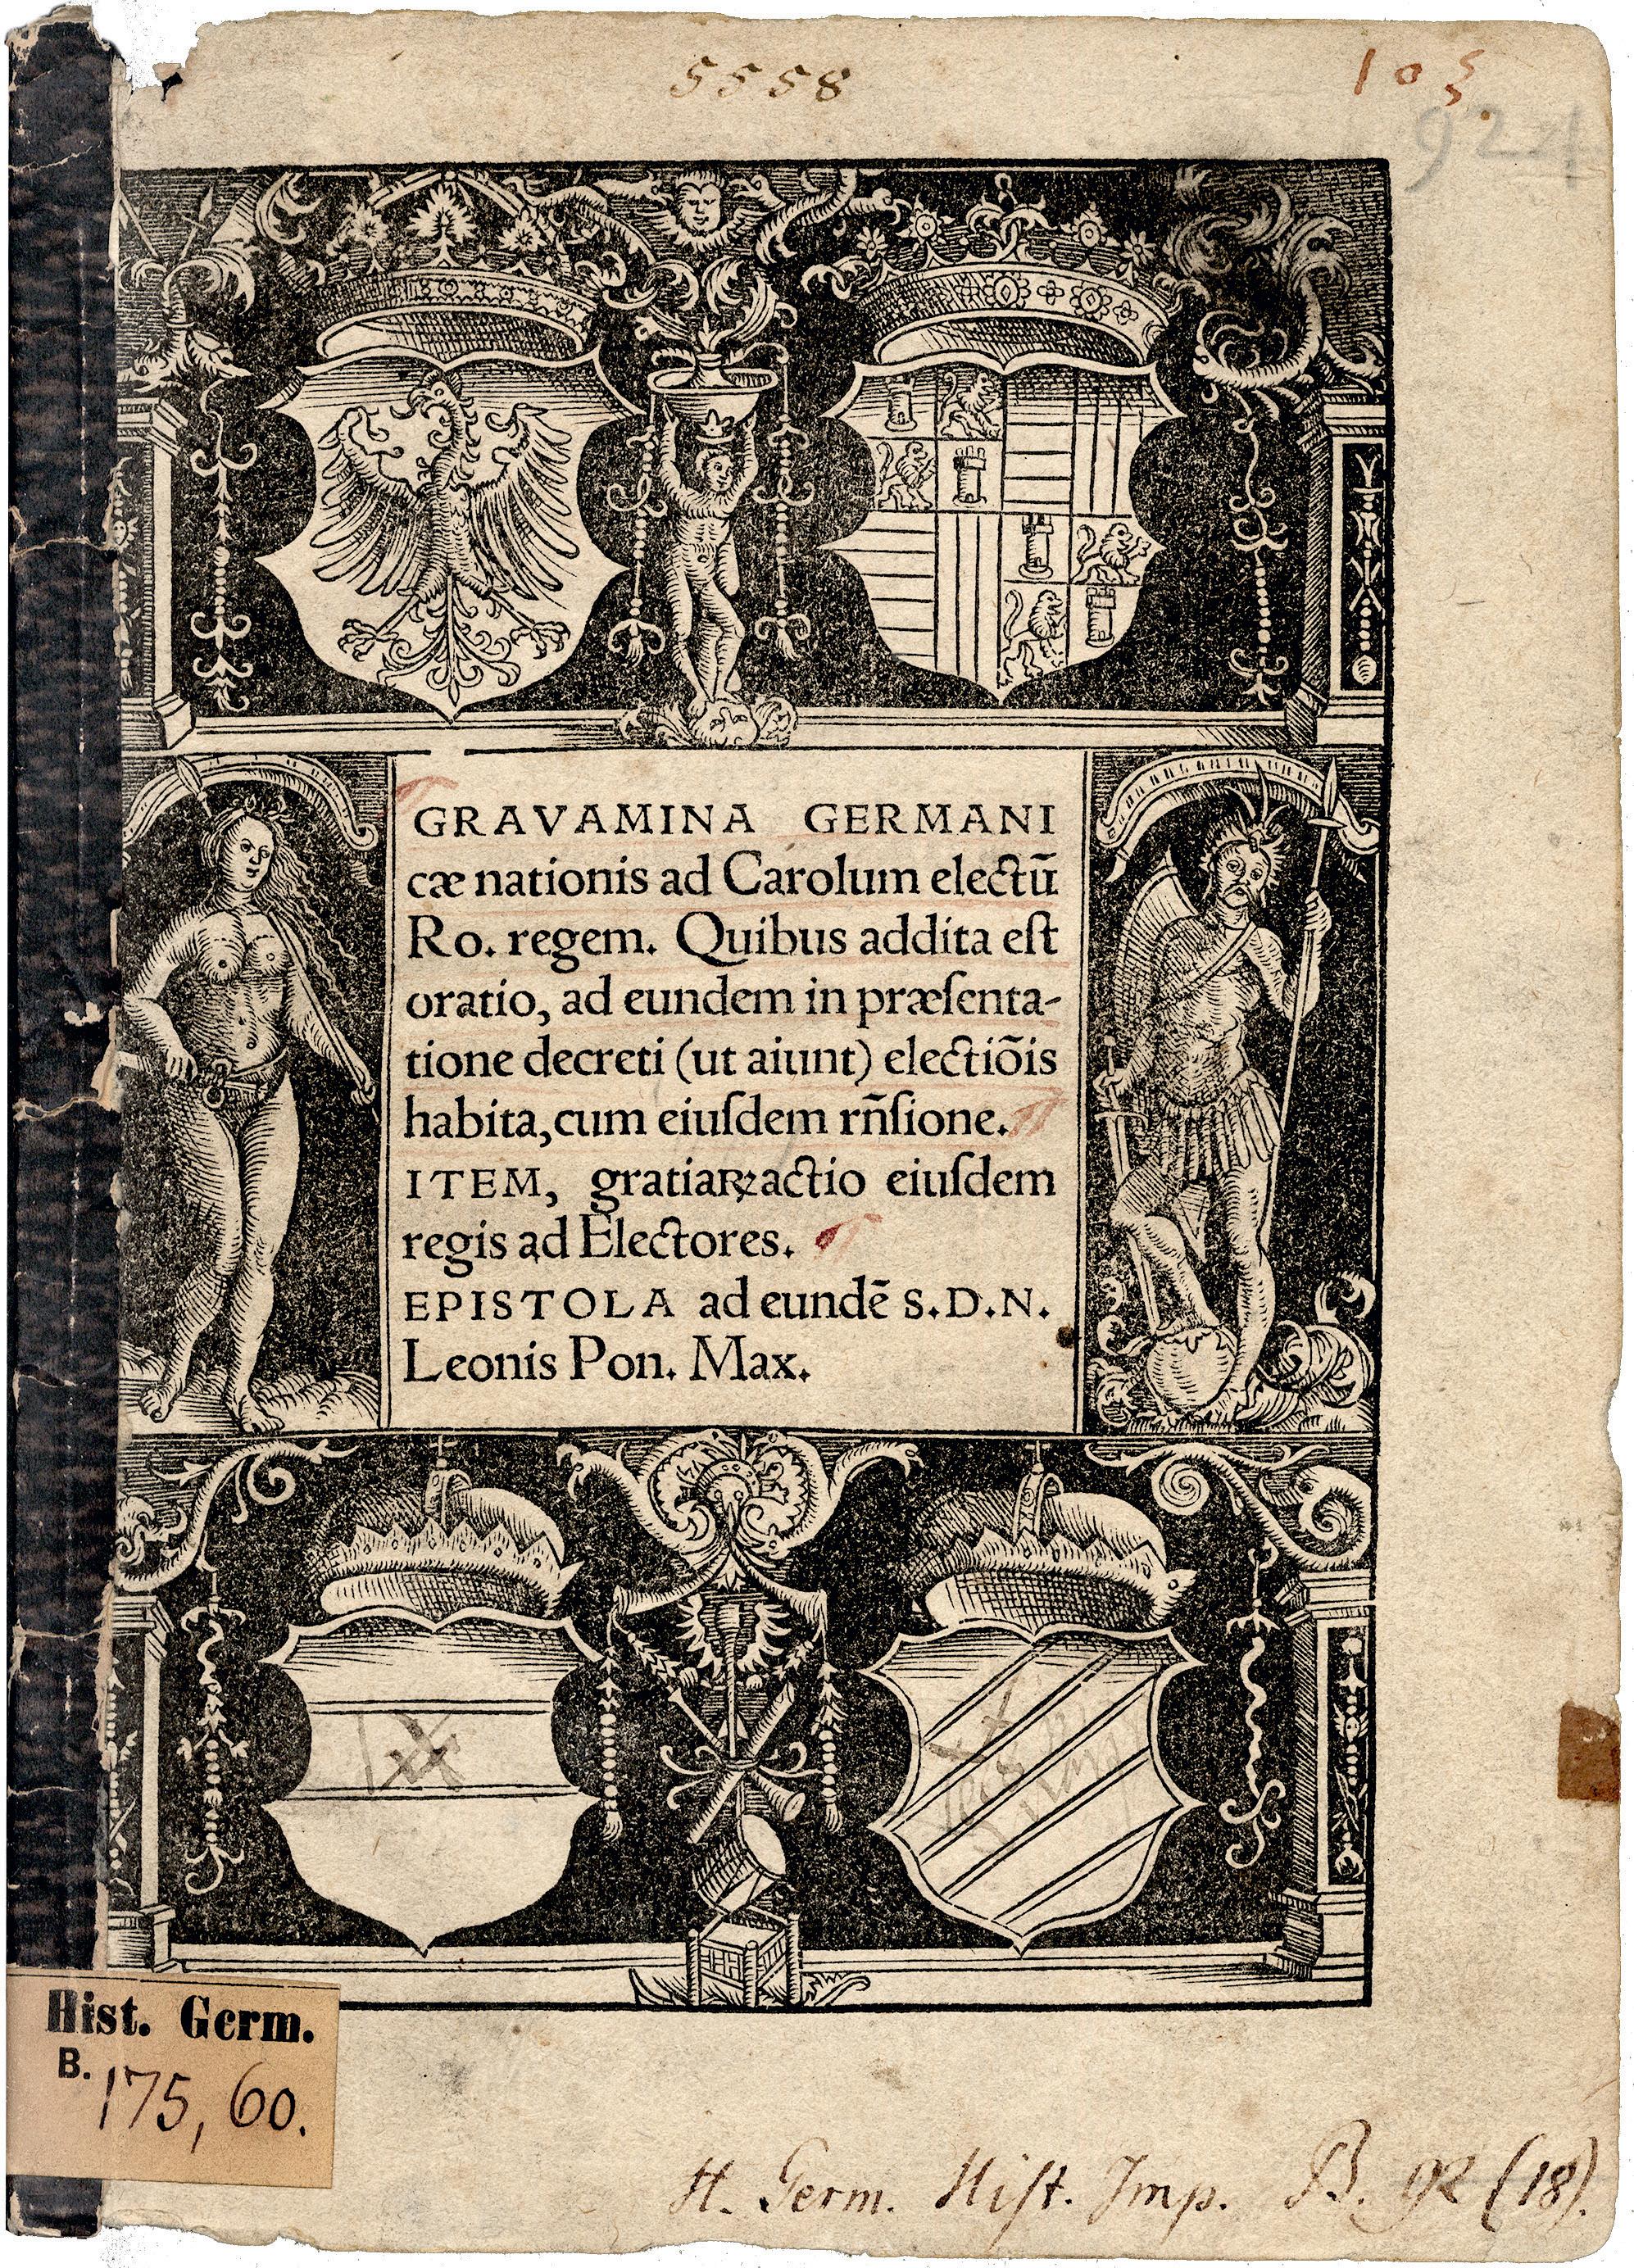 5558
103
924
GRAVAMINA GERMANI
cæ nationis ad Carolum electū
Ro. regem. Quibus addita eſt
oratio, ad eundem in præſenta-
tione decreti (ut aiunt) electiōis
habita, cum eiuſdem rñſione.
ITEM, gratiaꝝ actio eiuſdem
regis ad Electores.
EPISTOLA ad eundē S.D.N.
Leonis Pon. Max.
Hist. Germ.
B.
175, 60.
H. Germ. Hiſt. Imp. B. 92 (18).